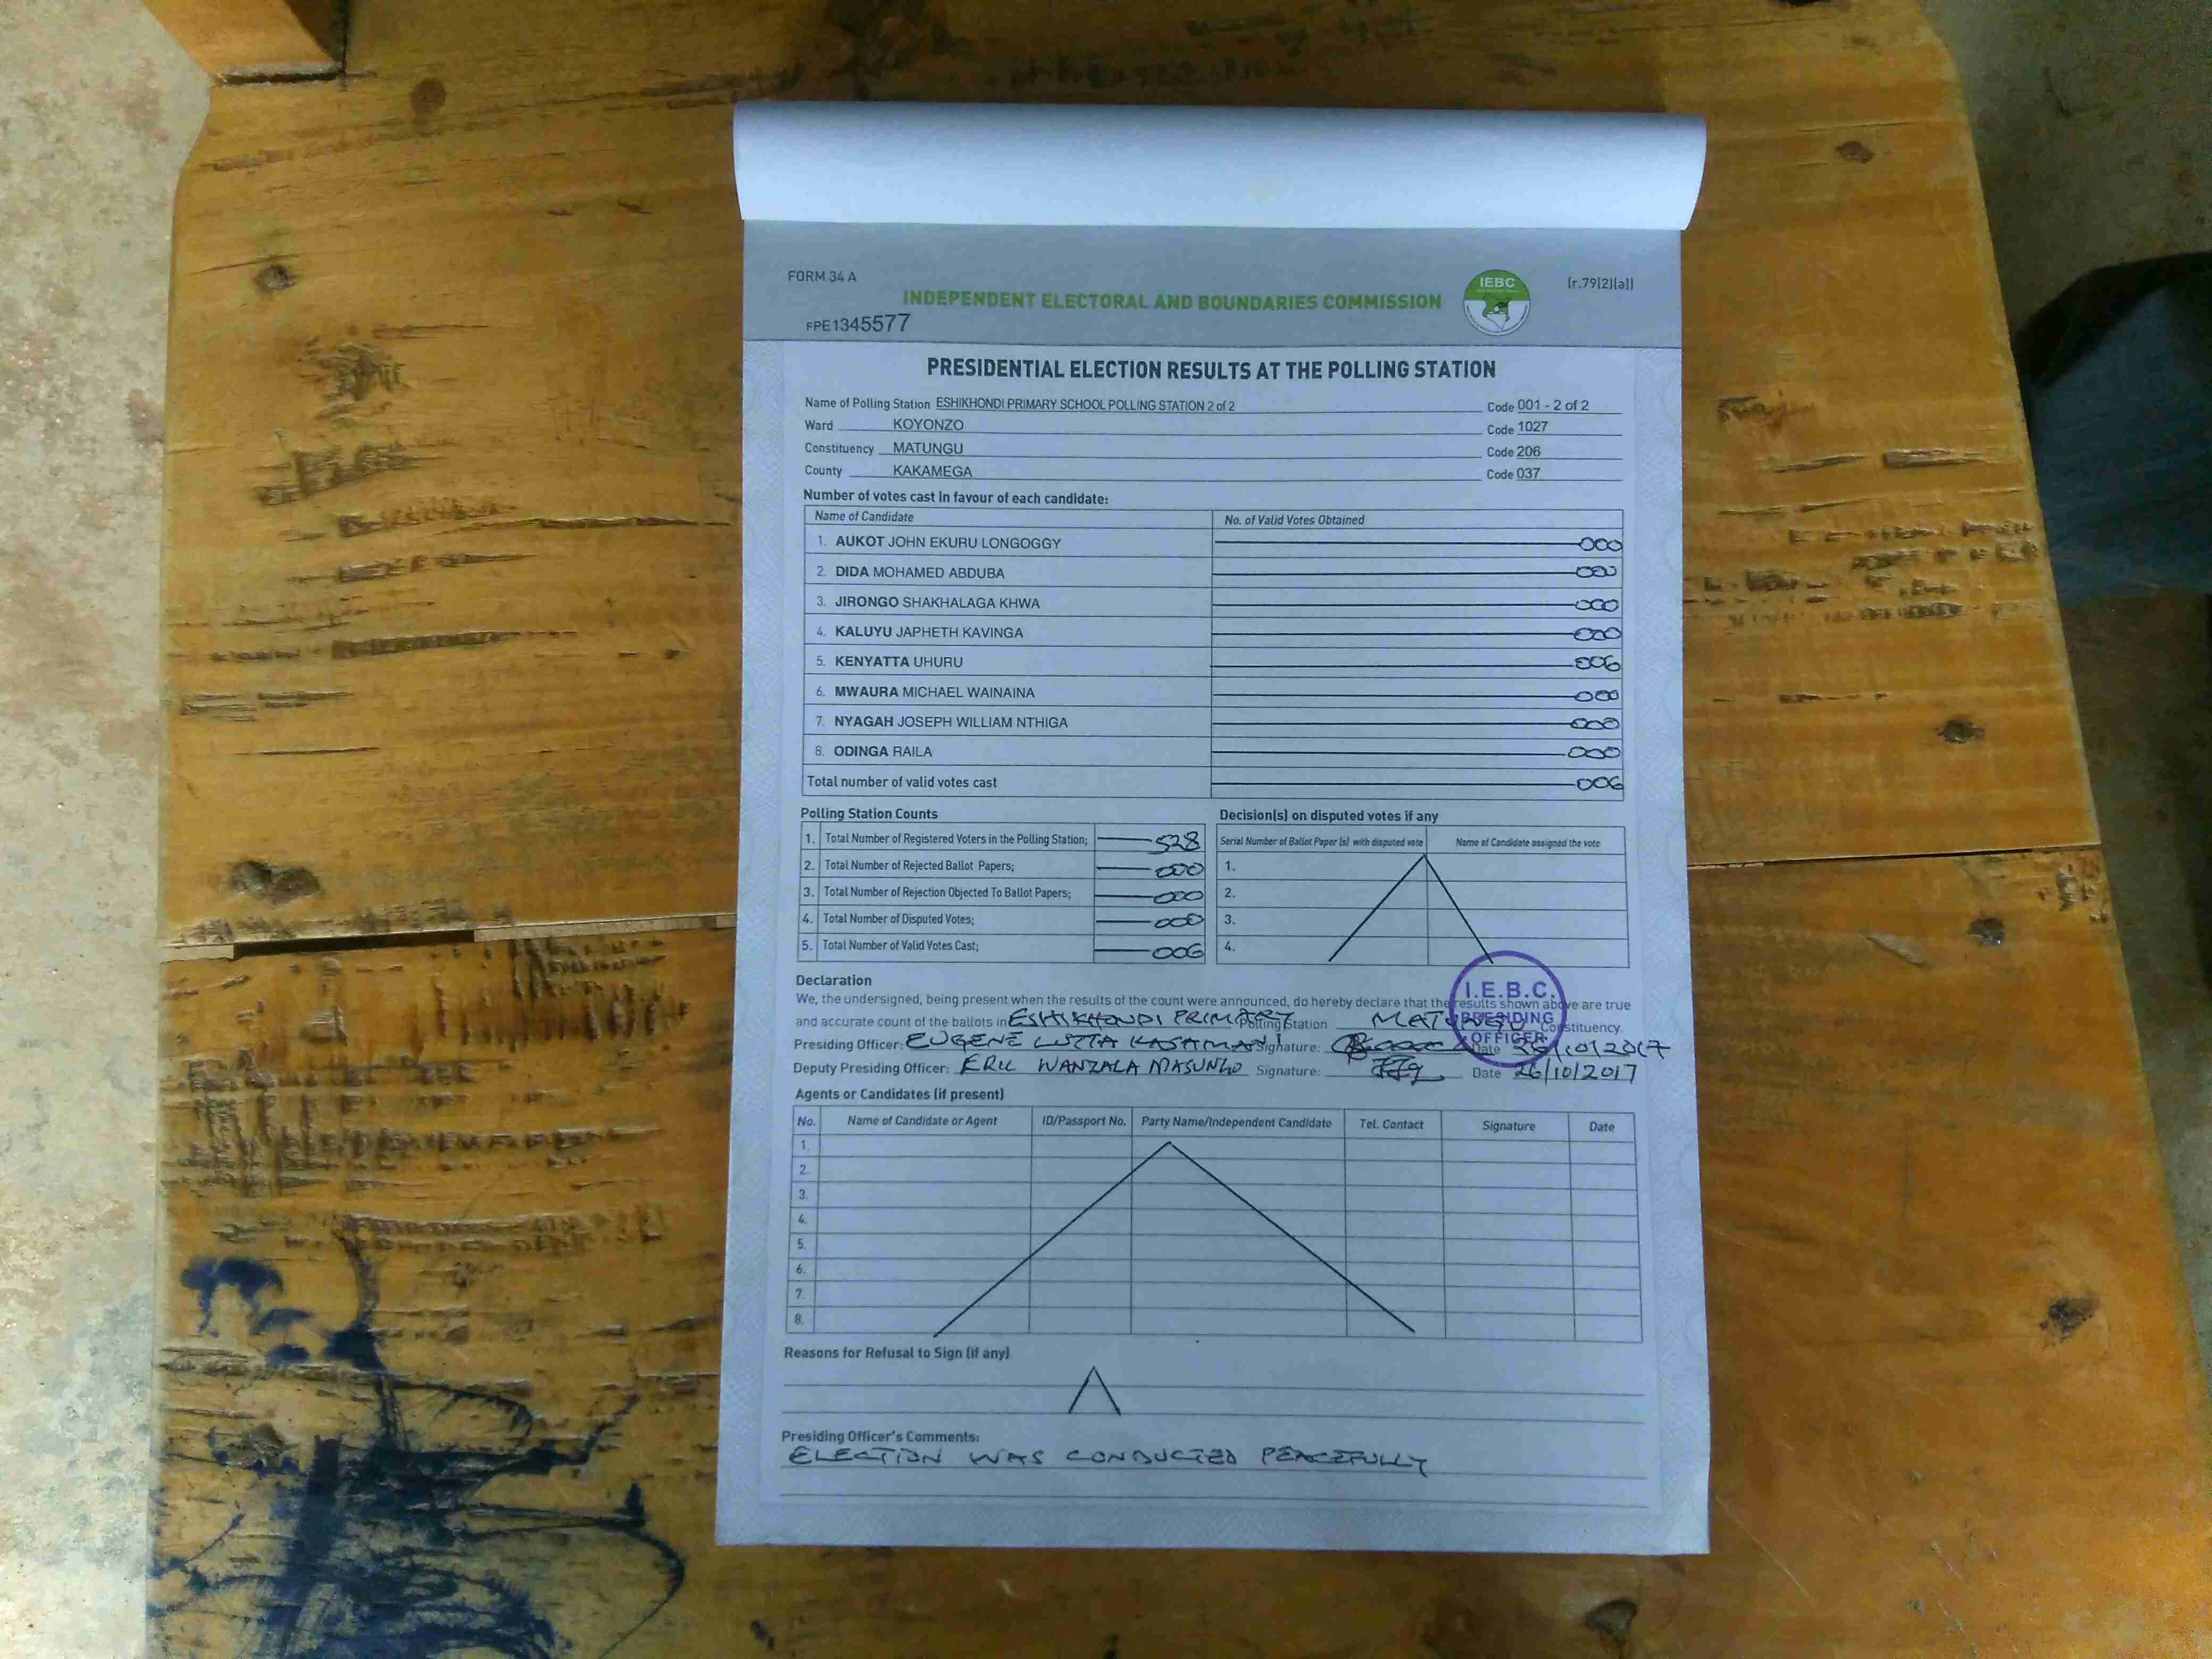 FORM 34 A
(r.79(2)(a))
INDEPENDENT ELECTORAL AND BOUNDARIES COMMISSION
IEBC
FPE1345577
PRESIDENTIAL ELECTION RESULTS AT THE POLLING STATION
Name of Polling Station ESHIKHONDI PRIMARY SCHOOL POLLING STATION 2 of 2 Code 001 - 2 of 2
Ward KOYONZO Code 1027
Constituency MATUNGU Code 206
County KAKAMEGA Code 037
Number of votes cast in favour of each candidate:
Name of Candidate No. of Valid Votes Obtained
1. AUKOT JOHN EKURU LONGOGGY 000
2. DIDA MOHAMED ABDUBA 000
3. JIRONGO SHAKHALAGA KHWA 000
4. KALUYU JAPHETH KAVINGA 000
5. KENYATTA UHURU 006
6. MWAURA MICHAEL WAINAINA 000
7. NYAGAH JOSEPH WILLIAM NTHIGA 000
8. ODINGA RAILA 000
Total number of valid votes cast 006
Polling Station Counts
1. Total Number of Registered Voters in the Polling Station; 528
2. Total Number of Rejected Ballot Papers; 000
3. Total Number of Rejection Objected To Ballot Papers; 000
4. Total Number of Disputed Votes; 000
5. Total Number of Valid Votes Cast; 006
Decision(s) on disputed votes if any
Serial Number of Ballot Paper (s) with disputed vote Name of Candidate assigned the vote
1.
2.
3.
4.
Declaration
We, the undersigned, being present when the results of the count were announced, do hereby declare that the results shown above are true
and accurate count of the ballots in ESHIKHONDI PRIMARY Polling Station MATUNGU Constituency.
Presiding Officer: EUGENE LUTTA KASAMANI Signature: Date 26/10/2017
Deputy Presiding Officer: ERIC WANZALA MASUNGO Signature: Date 26/10/2017
I.E.B.C.
PRESIDING
OFFICER
Agents or Candidates (if present)
No. Name of Candidate or Agent ID/Passport No. Party Name/Independent Candidate Tel. Contact Signature Date
1.
2.
3.
4.
5.
6.
7.
8.
Reasons for Refusal to Sign (if any)
Presiding Officer's Comments:
ELECTION WAS CONDUCTED PEACEFULLY